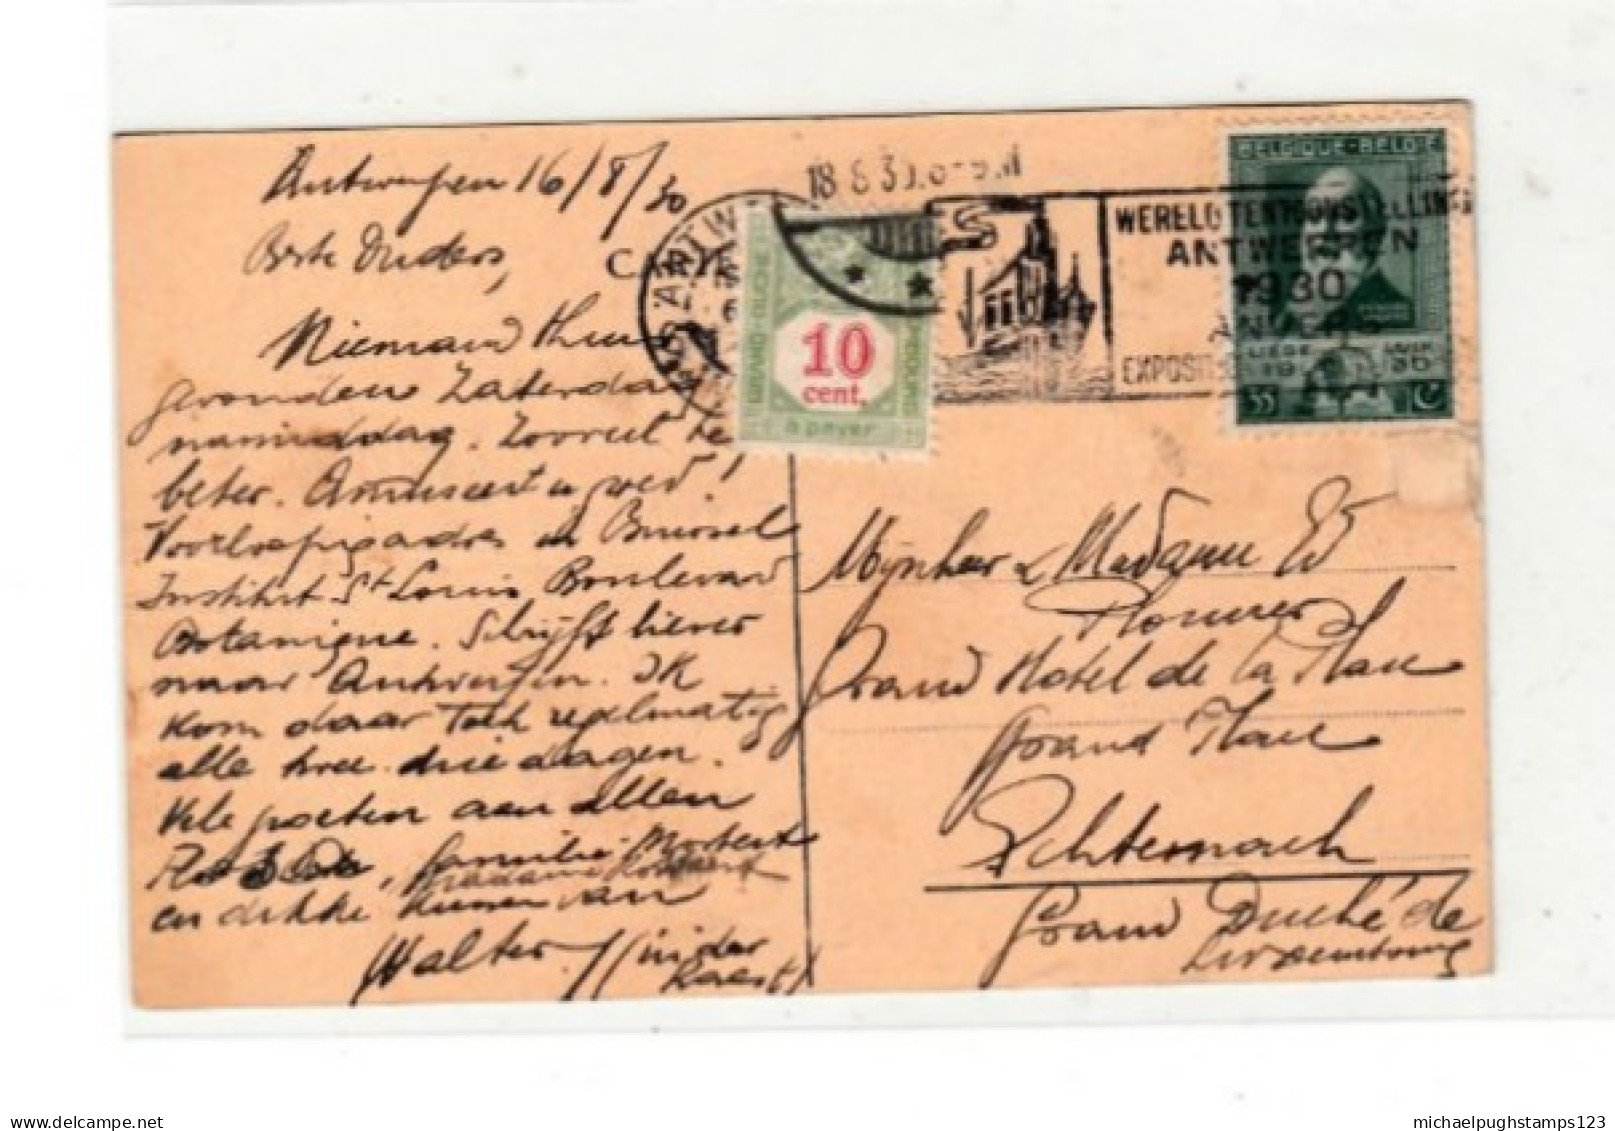 Antwerpen 16/8/30
Beste Ouders,
Niemand thuis
gevonden Zaterdag
namiddag. Zooveel te
beter. Amuseert u goed!
Voorloopig adres in Brussel
Institut St Louis Boulevard
Botanique. Schrijft liever
naar Antwerpen. Ik
kom daar toch regelmatig
alle twee drie dagen.
Vele groeten aan allen
familie Mortert
Madame
en dikke kussen van
Walter
C
18 8 30
10
cent.
à payer
GRAND-DUCHÉ
WERELDTENTOONSTELLING
ANTWERPEN
1930
ANVERS
EXPOSIT
BELGIQUE-BELGIË
LIÈGE
35
Mijnheer & Madame
Grand Hotel de la Place
Grand Place
Echternach
Grand Duché de
Luxembourg
michaelpughstamps123